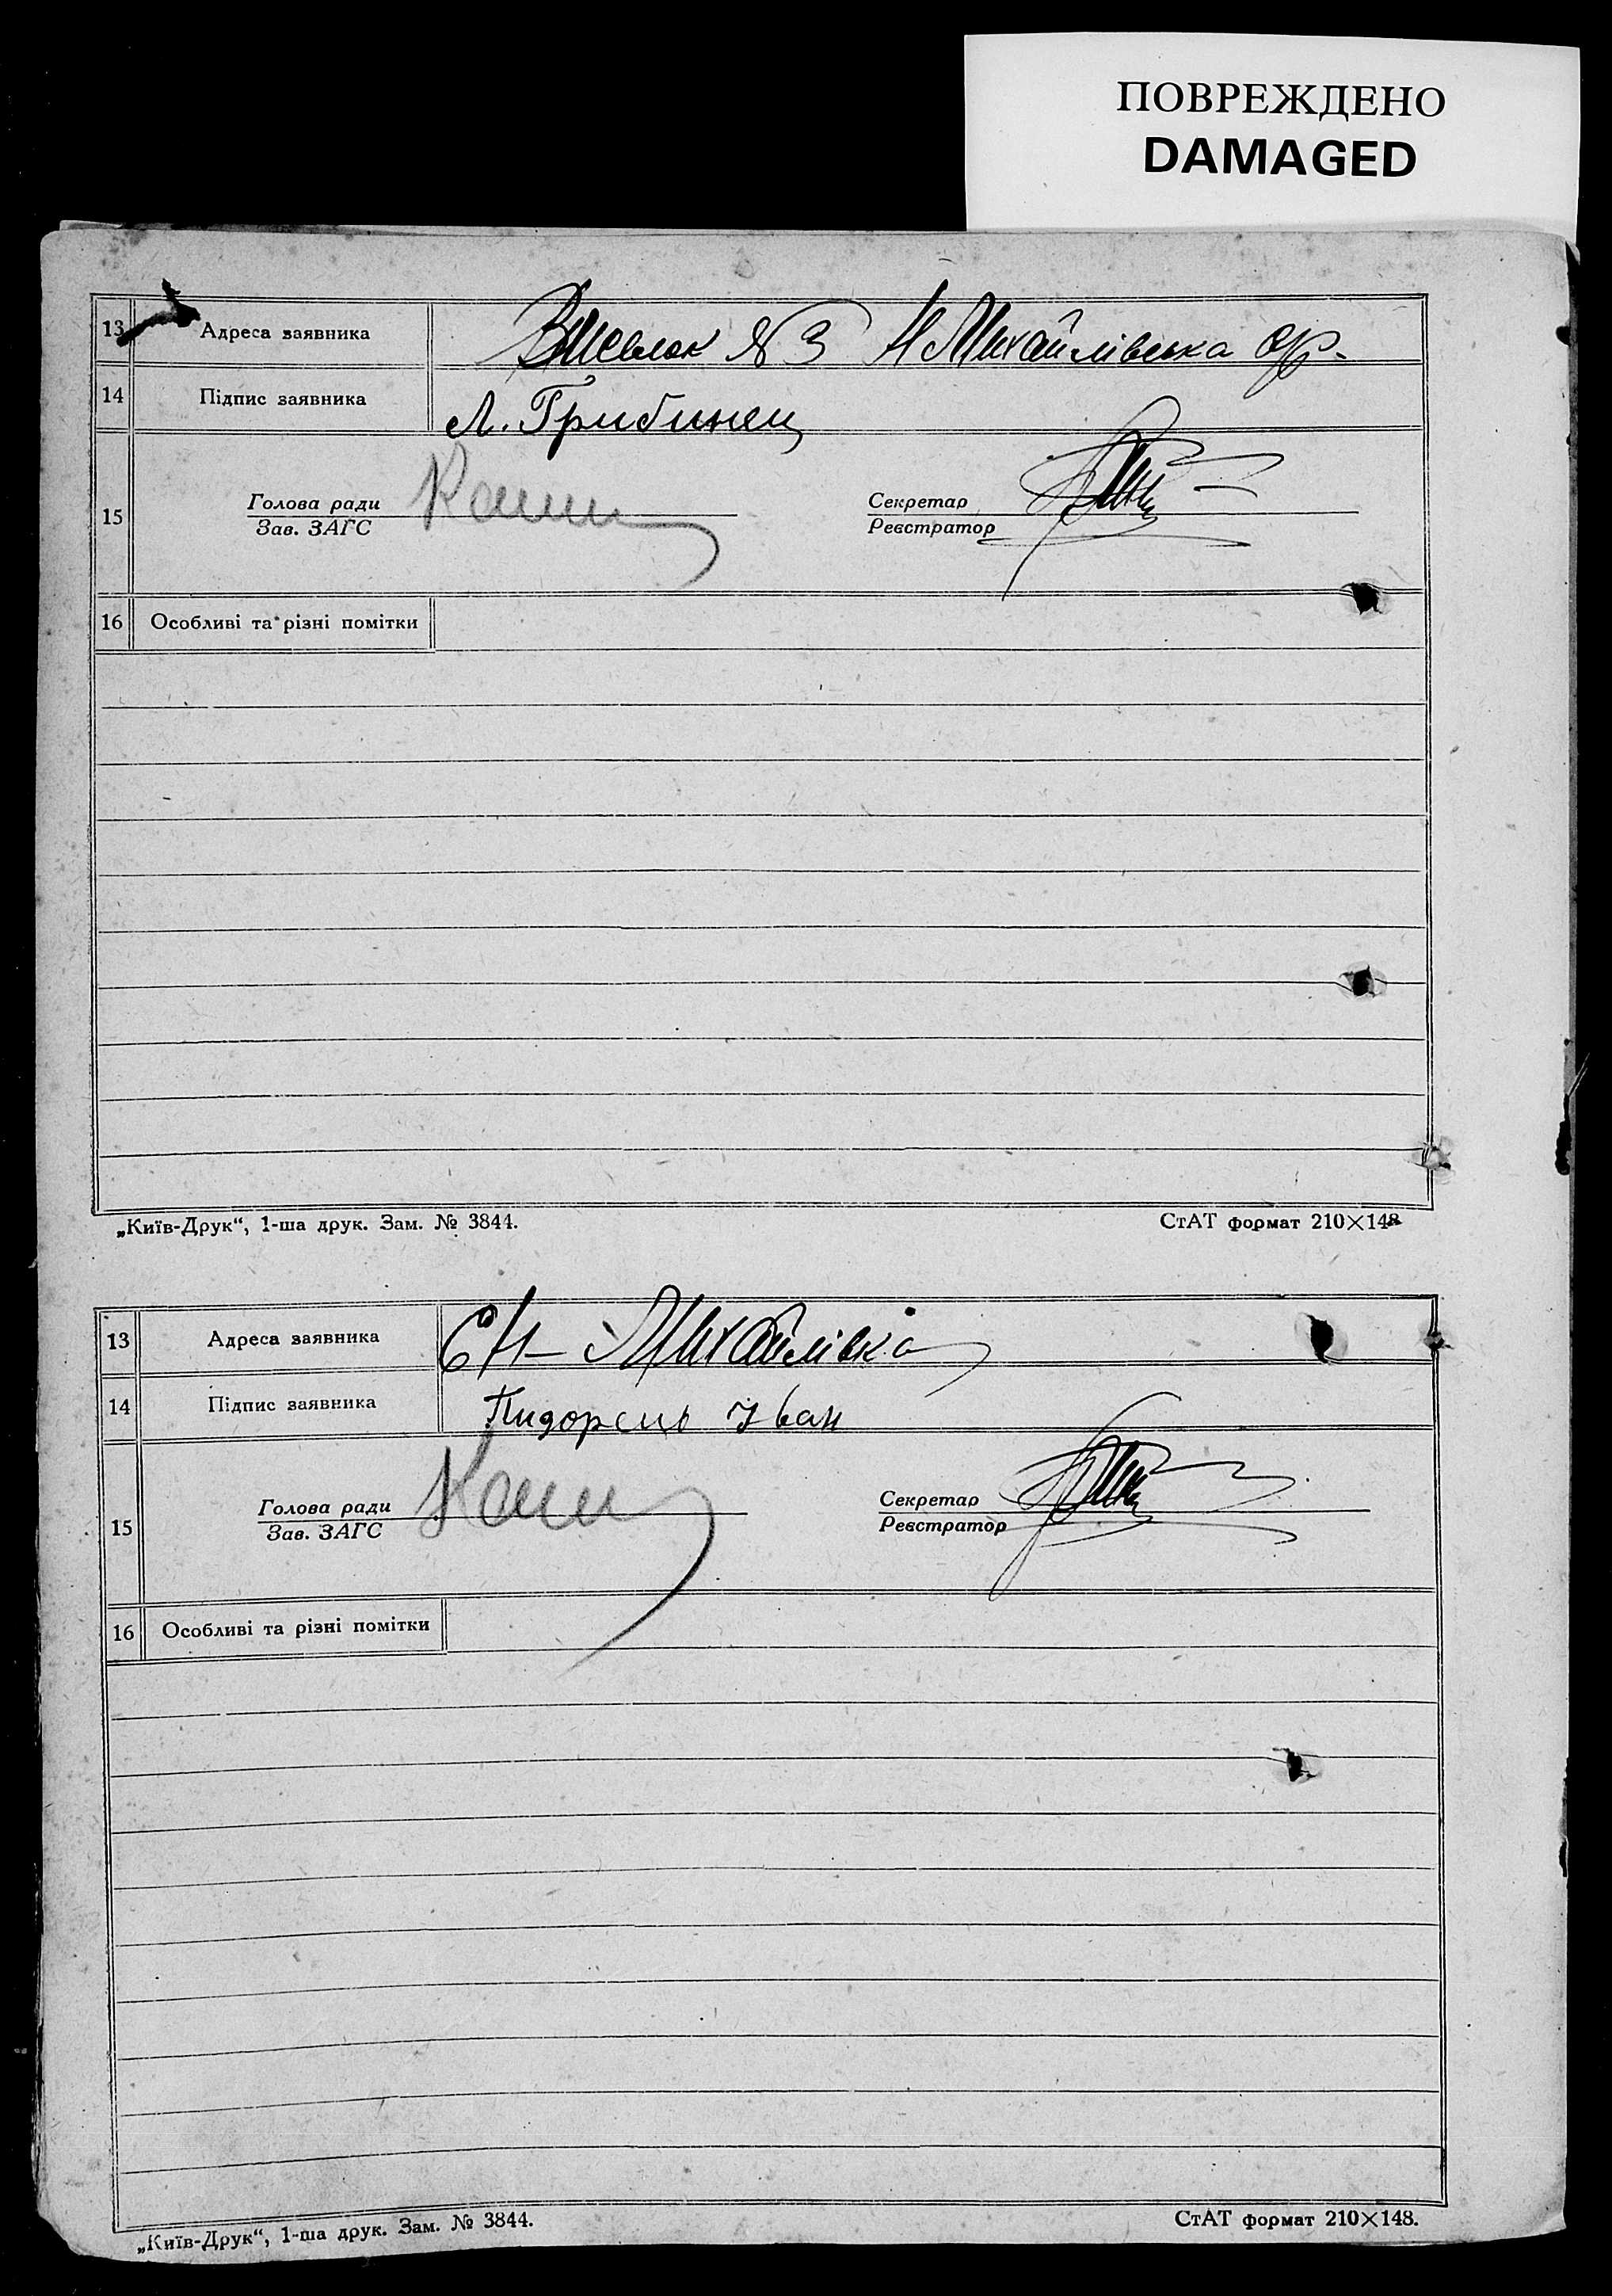 ПОВРЕЖДЕНО
DAMAGED
13 Адреса заявника №3 Н Михайлівська с/р.
14 Підпис заявника Л. Грибинец
15 Голова ради Секретар
Зав. ЗАГС Реєстратор
16 Особливі та різні помітки
„Київ-Друк“, 1-ша друк. Зам. № 3844. СтАТ формат 210×148
13 Адреса заявника С Н-Михайлівка
14 Підпис заявника Іван
15 Голова ради Секретар
Зав. ЗАГС Реєстратор
16 Особливі та різні помітки
„Київ-Друк“, 1-ша друк. Зам. № 3844. СтАТ формат 210×148.